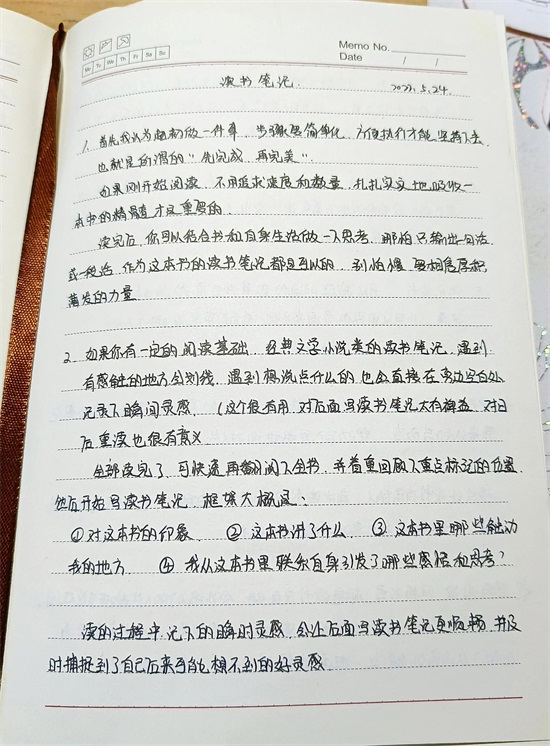 Memo No.
Mo Tu We Th Fr Sa Su
Date / /
读书笔记
2022.5.24.
1. 首先我认为起初做一件事,步骤要简单化,方便执行才能坚持下去,
也就是所谓的"先完成,再完美".
如果刚开始阅读,不用追求速度和数量,扎扎实实地吸收一
本书的精髓才是重要的.
读完后,你可以结合书和自身生活做一下思考,哪怕只输出一句话
或一段话,作为这本书的读书笔记都是可以的,别怕慢,要相信厚积
薄发的力量.
2. 如果你有一定的阅读基础,经典文学小说类的读书笔记,遇到
有感触的地方会划线,遇到想说点什么的也会直接在旁边空白处
记录下瞬间灵感.(这个很有用,对后面写读书笔记大有裨益,对日
后重读也很有意义
全部读完了,可快速再翻阅下全书,并着重回顾下重点标记的位置,
然后开始写读书笔记,框架大概是:
①对这本书的印象 ②这本书讲了什么 ③这本书里哪些触动
我的地方 ④我从这本书里联系自身引发了哪些感悟和思考?
读的过程中记下的瞬时灵感,会让后面写读书笔记更顺畅,并及
时捕捉到了自己后来可能想不到的好灵感.